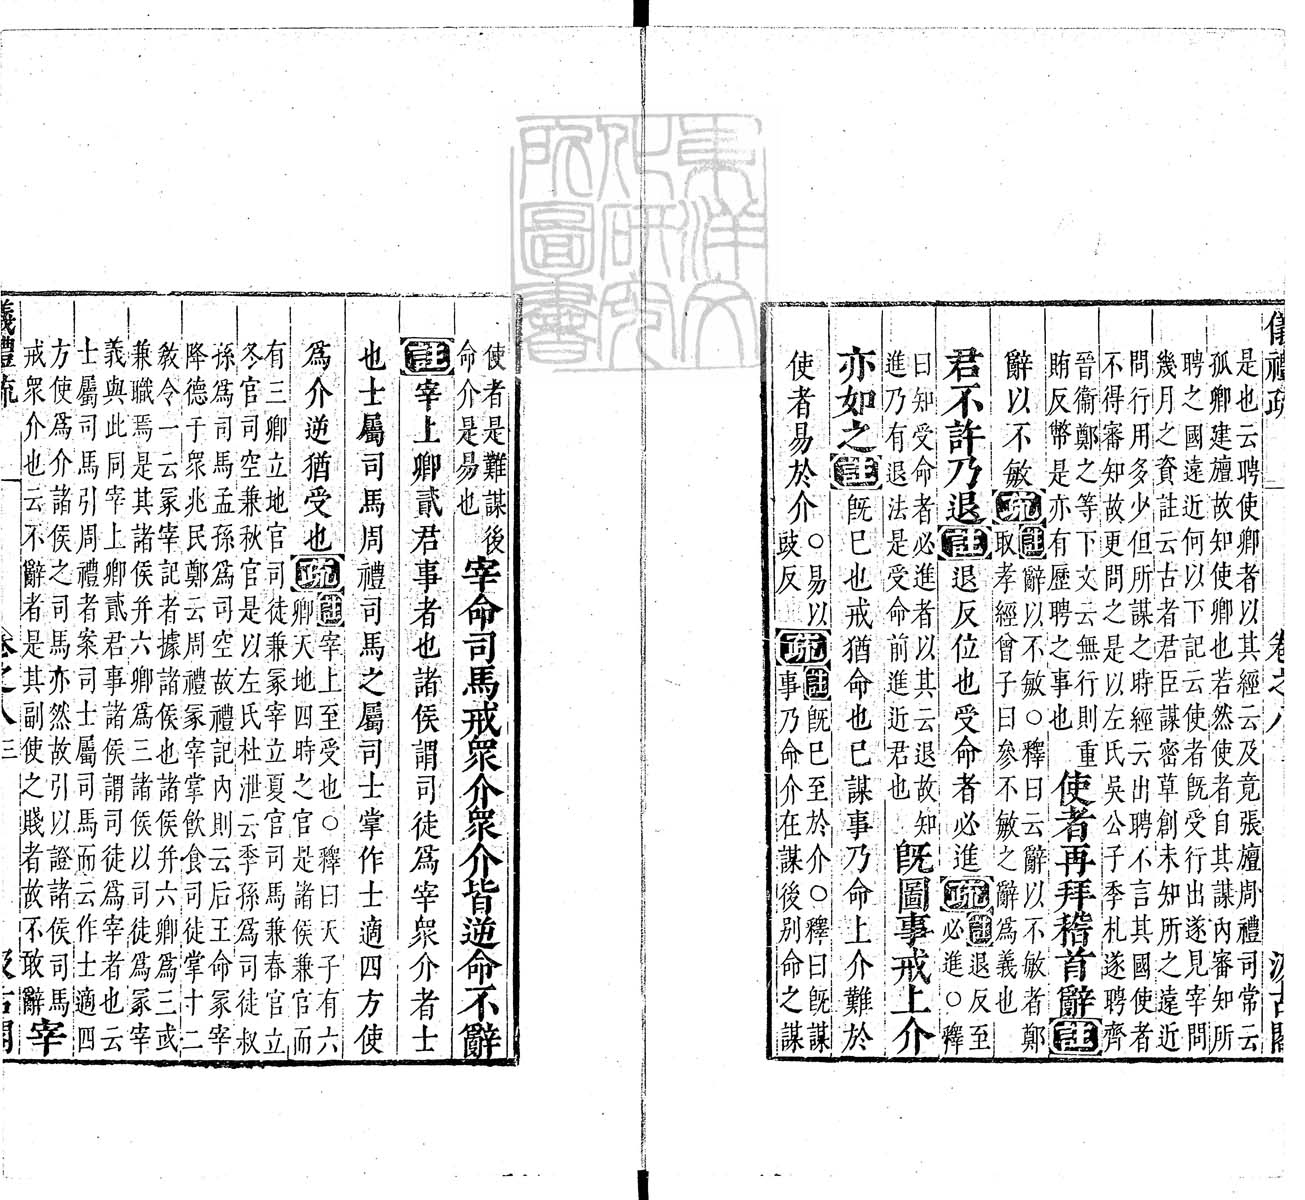 儀禮疏 卷之八 汲古閣
是也云聘使卿者以其經云及竟張旜周禮司常云
孤卿建旜故知使卿也若然使者自其謀內審知所
聘之國遠近何以下記云使者旣受行出遂見宰問
幾月之資註云古者君臣謀密草創未知所之遠近
問行用多少但所謀之時經云出聘不言其國使者
不得審知故更問之是以左氏吳公子季札遂聘齊
晉衞鄭之等下文云無行則重
賄反幣是亦有歷聘之事也
使者再拜稽首辭註
辭以不敏疏註辭以不敏○釋曰云辭以不敏者鄭
取孝經曾子曰參不敏之辭爲義也
君不許乃退註退反位也受命者必進疏註退反至
必進○釋
曰知受命者必進者以其云退故知
進乃有退法是受命前進近君也
旣圖事戒上介
亦如之註旣已也戒猶命也已謀事乃命上介難於
使者易於介○易以
豉反
疏註旣已至於介○釋曰旣謀
事乃命介在謀後別命之謀
使者是難謀後
命介是易也
宰命司馬戒衆介衆介皆逆命不辭
註宰上卿貳君事者也諸侯謂司徒爲宰衆介者士
也士屬司馬周禮司馬之屬司士掌作士適四方使
爲介逆猶受也疏註宰上至受也○釋曰天子有六
卿天地四時之官是諸侯兼官而
有三卿立地官司徒兼冢宰立夏官司馬兼春官立
冬官司空兼秋官是以左氏杜泄云季孫爲司徒叔
孫爲司馬孟孫爲司空故禮記內則云后王命冢宰
降德于衆兆民鄭云周禮冢宰掌飮食司徒掌十二
敎令一云冢宰記者據諸侯也諸侯幷六卿爲三或
兼職焉是其諸侯幷六卿爲三諸侯以司徒爲冢宰
義與此同宰上卿貳君事諸侯謂司徒爲宰者也云
士屬司馬引周禮者案司士屬司馬而云作士適四
方使爲介諸侯之司馬亦然故引以證諸侯司馬
戒衆介也云不辭者是其副使之賤者故不敢辭
宰
儀禮疏 卷之八 三 汲古閣
東洋文化研究所圖書